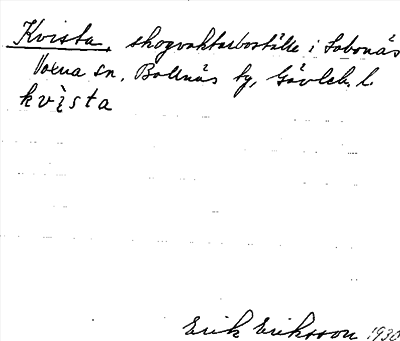 Kvista, skogvaktarboställe i Sobonäs
Voxna sn, Bollnäs tg, Gävleb. l.
kvìsta
Erik Eriksson 1930